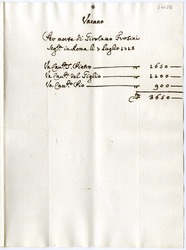 Vacano
Per morte di Girolamo Frosini
Segl. in Roma li 3 Luglio 1728
Un Caval. S. Pietro 1650
Un Caval. del Giglio 1100
Un Caval. Pio 900
3650